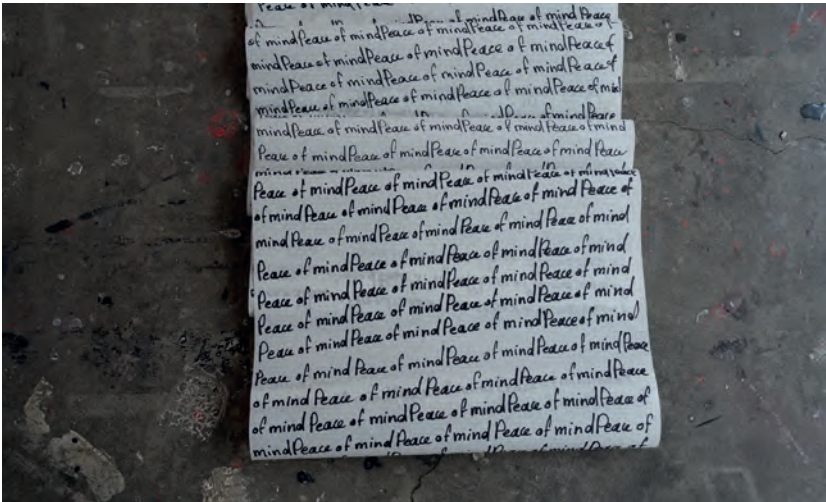 Peace of mind
of mind Peace of mind Peace
of mindPeace of mindPeace of mindPeace of mindPeace of
mindPeace of mindPeace of mindPeace of mindPeaceof
mindPeace of mindPeace of mindPeace of mindPeaceof
mindPeace of mindPeace of mindPeace of mindPeace of mind
mindPeace of mindPeace of mindPeace of mindPeace of mind
Peace of mindPeace of mindPeace of mindPeace of mindPeace
Peace of mindPeace of mindPeace of mindPeace of mindPeace
of mindPeace of mindPeace of mindPeace of mind Peace of
mindPeace of mindPeace of mindPeace of mindPeace of mind
Peace of mindPeace of mindPeace of mindPeace of mind
Peace of mindPeace of mindPeace of mindPeace of mind
Peace of mindPeace of mindPeace of mindPeace of mind
Peace of mindPeace of mindPeace of mindPeaceof mind
Peace of mind Peace of mindPeace of mindPeace of mindPeace
of mind Peace of mind Peace of mindPeace of mindPeace
of mind Peace of mindPeace of mindPeace of mindPeace of
mindPeace of mindPeace of mind Peace of mindPeace of